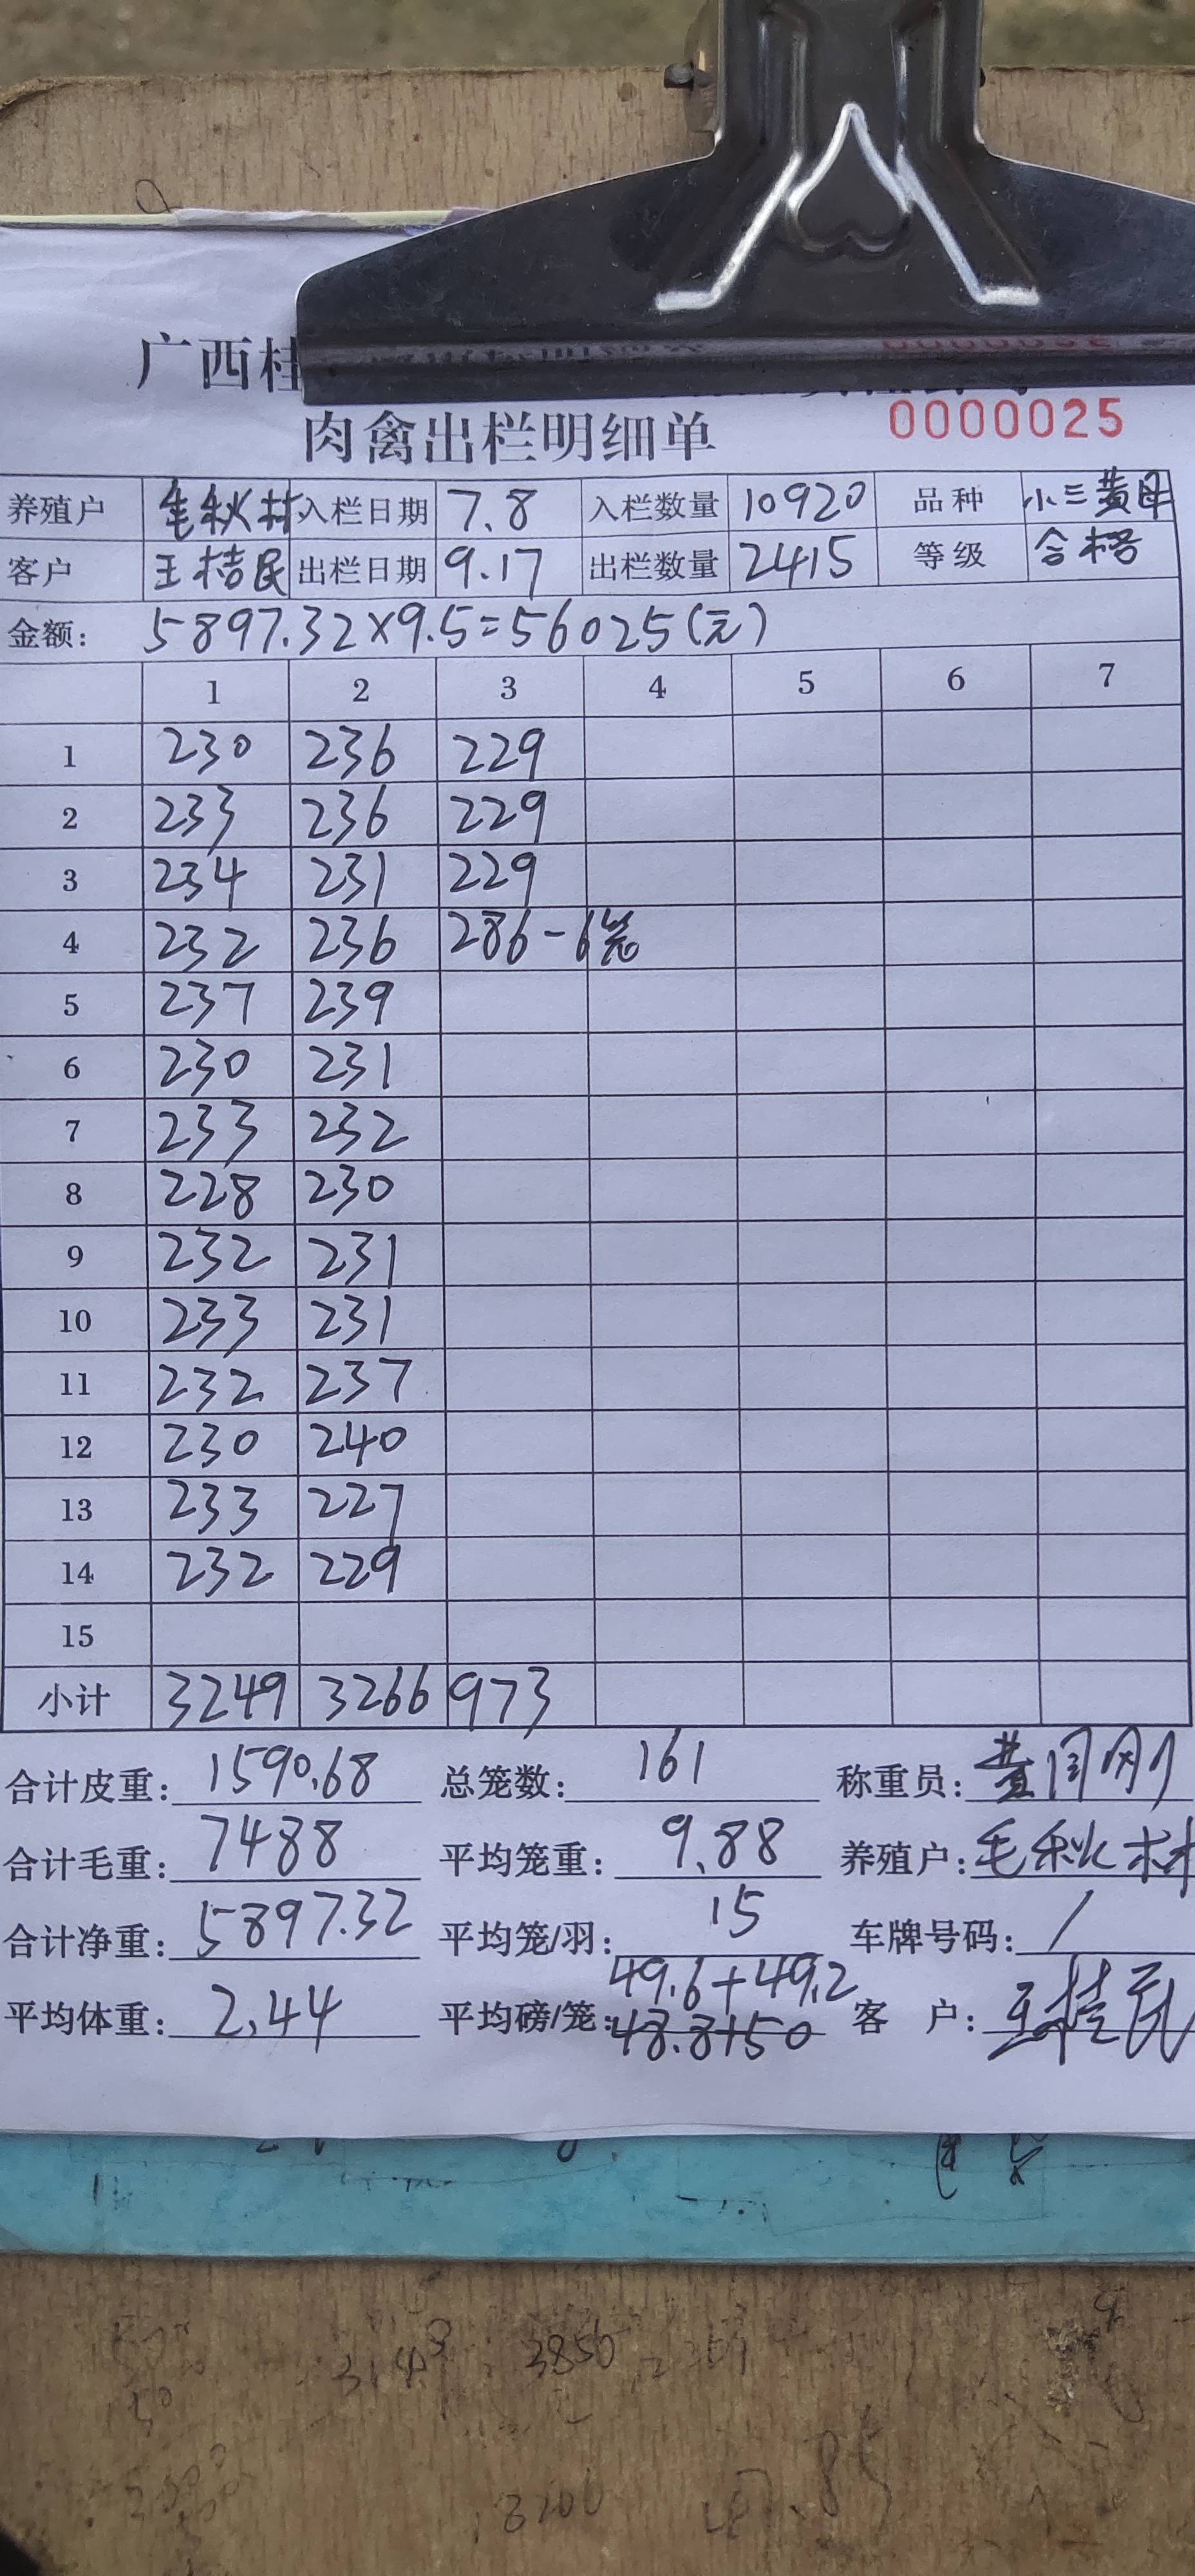 广西桂
肉禽出栏明细单 0000025
养殖户 毛秋林 入栏日期 7.8 入栏数量 10920 品种 小三黄母
客户 王桔民 出栏日期 9.17 出栏数量 2415 等级 合格
金额: 5897.32×9.5=56025(元)
1 2 3 4 5 6 7
1 230 236 229
2 233 236 229
3 234 231 229
4 232 236 286-6笼
5 237 239
6 230 231
7 233 232
8 228 230
9 232 231
10 233 231
11 232 237
12 230 240
13 233 227
14 232 229
15
小计 3249 3266 973
合计皮重: 1590.68 总笼数: 161 称重员:
合计毛重: 7488 平均笼重: 9.88 养殖户: 毛秋林
合计净重: 5897.32 平均笼/羽: 15 车牌号码: /
49.6+49.2
平均体重: 2.44 平均磅/笼: 48.8+50 客户:
3850
3200